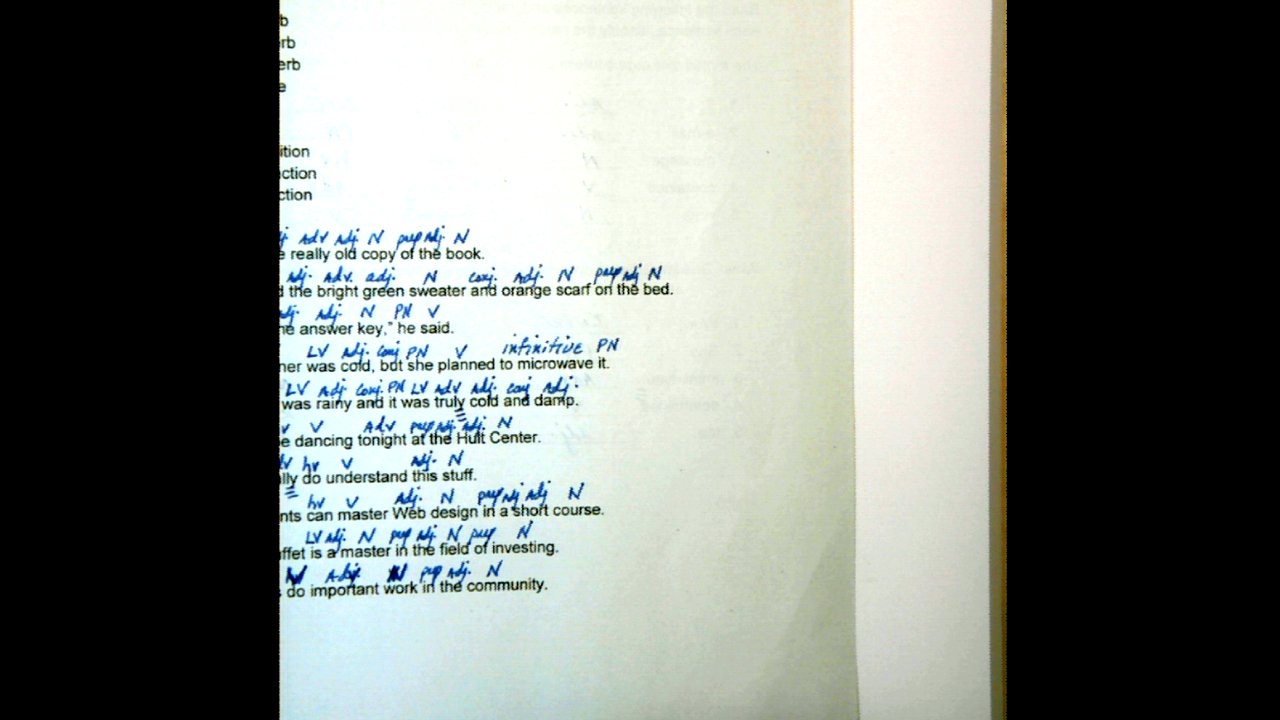 b
rb
erb
e
ition
ction
ction
j Adv Adj. N prep Adj. N
e really old copy of the book.
Adj. Adv. adj. N conj. Adj. N prep Adj N
d the bright green sweater and orange scarf on the bed.
adj. Adj. N PN V
he answer key," he said.
LV Adj. Conj PN V infinitive PN
ner was cold, but she planned to microwave it.
LV Adj Conj. PN LV Adv Adj. conj Adj.
was rainy and it was truly cold and damp.
v V Adv prep Adj. Adj. N
e dancing tonight at the Hult Center.
dv hv V Adj. N
lly do understand this stuff.
hv V Adj. N prep Adj Adj N
nts can master Web design in a short course.
LV Adj. N prep Adj N prep N
ffet is a master in the field of investing.
Adj. N prep Adj. N
do important work in the community.